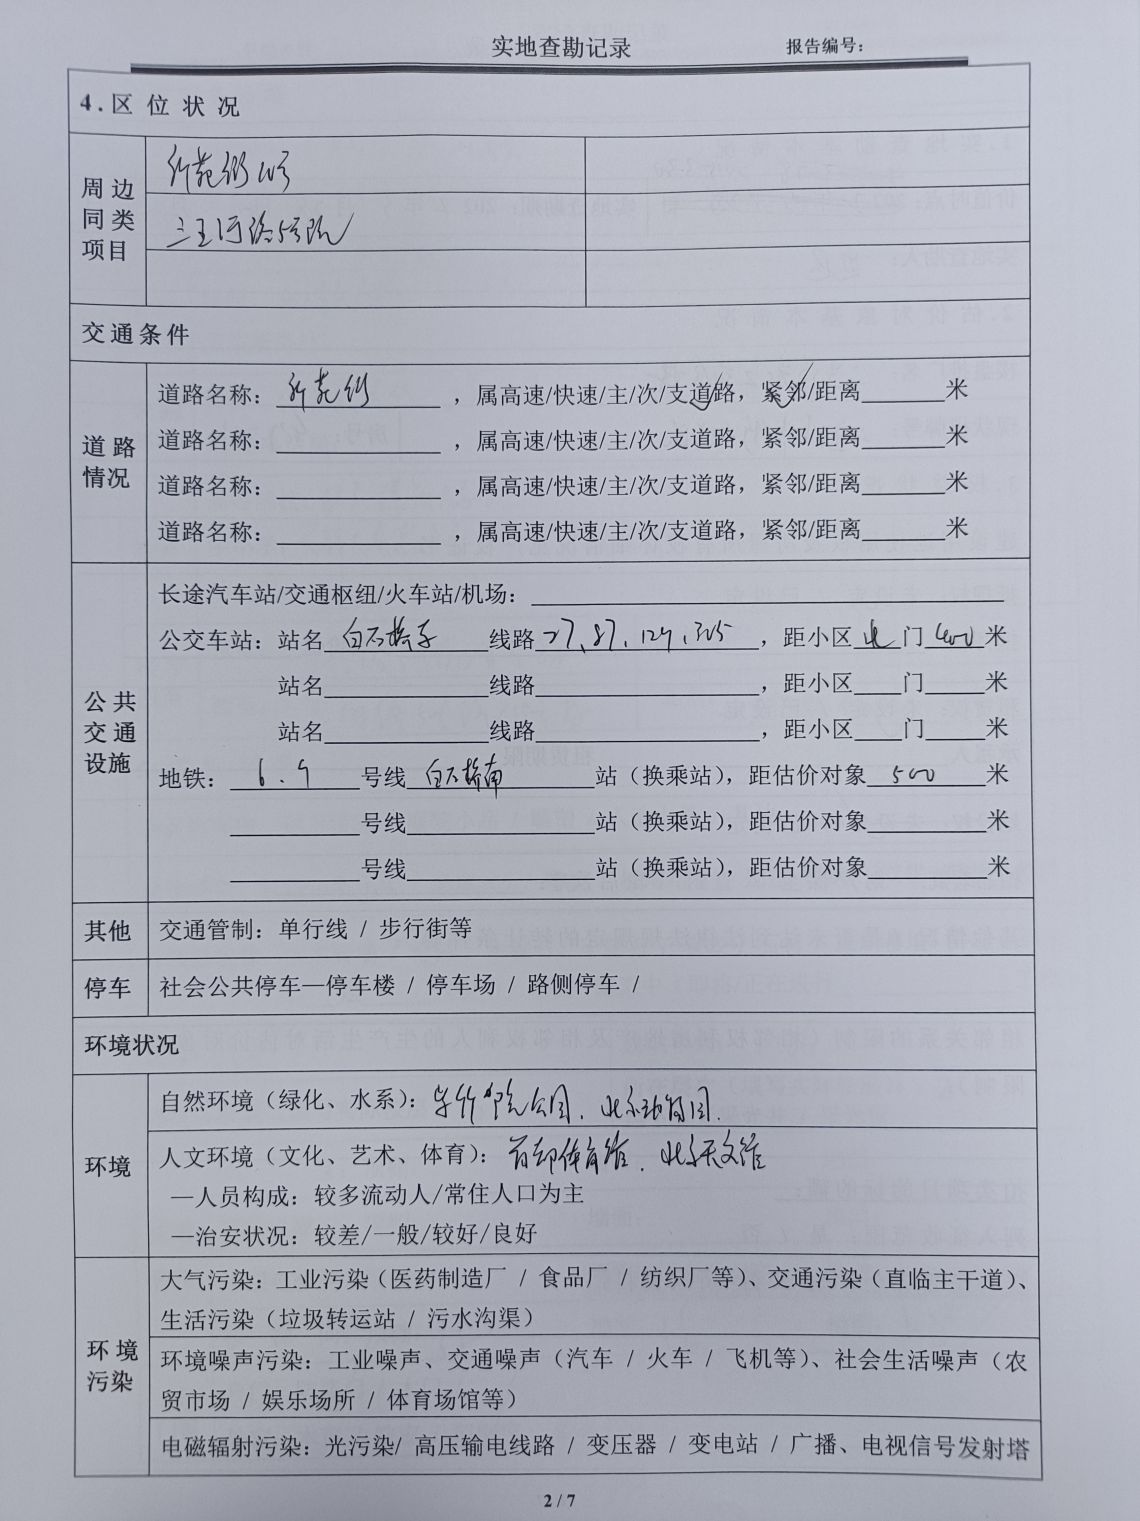 实地查勘记录
报告编号：
4.区位状况
周边同类项目
新苑街10号
三里河路5号院
交通条件
道路情况
道路名称：新苑街，属高速/快速/主/次/支道路，紧邻/距离______米
道路名称：__________，属高速/快速/主/次/支道路，紧邻/距离______米
道路名称：__________，属高速/快速/主/次/支道路，紧邻/距离______米
道路名称：__________，属高速/快速/主/次/支道路，紧邻/距离______米
公共交通设施
长途汽车站/交通枢纽/火车站/机场：__________
公交车站：站名白石桥东线路27、87、129、305，距小区北门400米
站名__________线路__________，距小区____门____米
站名__________线路__________，距小区____门____米
地铁：6、9号线白石桥南站（换乘站），距估价对象500米
__________号线__________站（换乘站），距估价对象______米
__________号线__________站（换乘站），距估价对象______米
其他
交通管制：单行线 / 步行街等
停车
社会公共停车—停车楼 / 停车场 / 路侧停车 /
环境状况
环境
自然环境（绿化、水系）：紫竹院公园、北京动物园.
人文环境（文化、艺术、体育）：首都体育馆、北京天文馆
—人员构成：较多流动人/常住人口为主
—治安状况：较差/一般/较好/良好
环境污染
大气污染：工业污染（医药制造厂 / 食品厂 / 纺织厂等）、交通污染（直临主干道）、
生活污染（垃圾转运站 / 污水沟渠）
环境噪声污染：工业噪声、交通噪声（汽车 / 火车 / 飞机等）、社会生活噪声（农
贸市场 / 娱乐场所 / 体育场馆等）
电磁辐射污染：光污染/ 高压输电线路 / 变压器 / 变电站 / 广播、电视信号发射塔
2 / 7